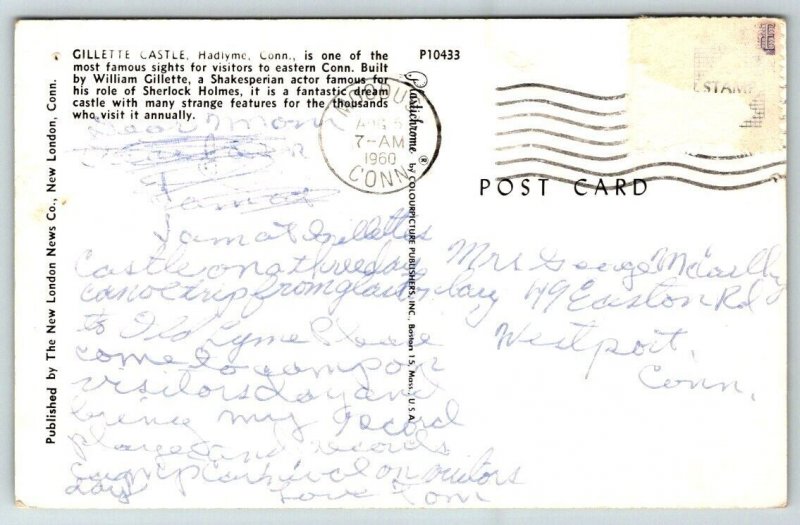 GILLETTE CASTLE, Hadlyme, Conn., is one of the
most famous sights for visitors to eastern Conn. Built
by William Gillette, a Shakesperian actor famous for
his role of Sherlock Holmes, it is a fantastic dream
castle with many strange features for the thousands
who visit it annually.
P10433
Published by The New London News Co., New London, Conn.
Plastichrome ® by COLOURPICTURE PUBLISHERS, INC., Boston 15, Mass., U.S.A.
MOODUS
AUG 5
7-AM
1960
CONN.
STAMP
POST CARD
Dear Mom
I am at Gillettes
Castle on a three day
canoe trip from
to Old Lyme Please
come to camp on
visitors day and
bring my record
player and records
Camp Carnival on visitors
day
Love Tom
Mrs George
49 Easton Rd
Westport,
Conn.